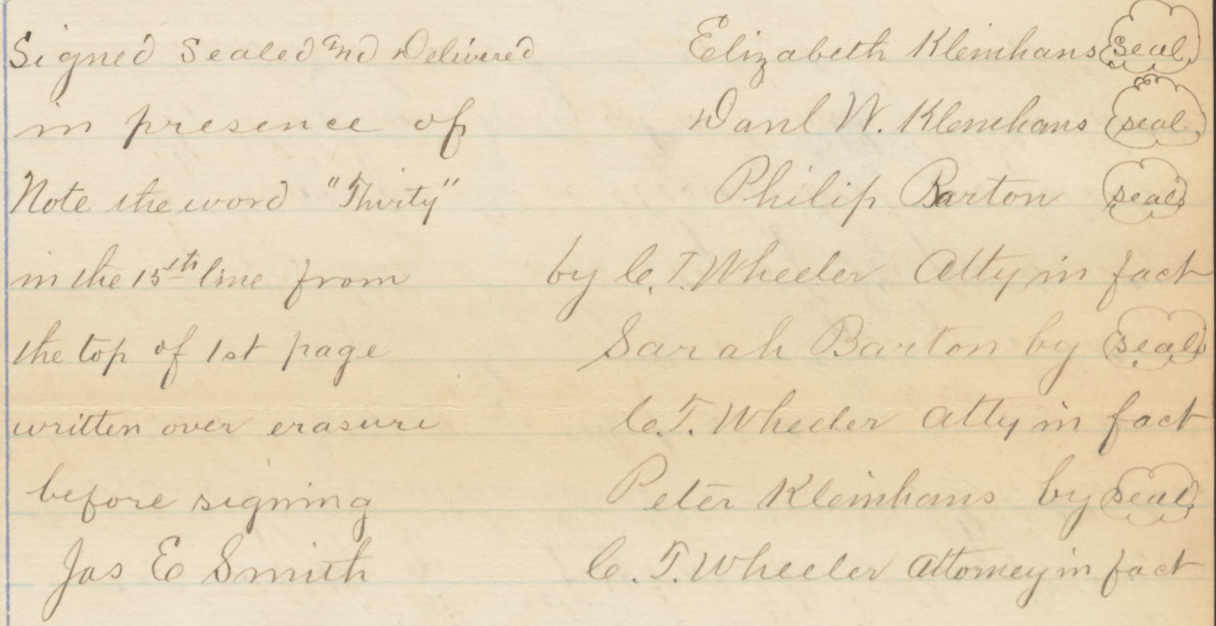 Signed Sealed and Delivered
in presence of
Note the word "Thirty"
in the 15th line from
the top of 1st page
written over erasure
before signing
Jas E Smith
Elizabeth Kleinhans seal
Danl W. Kleinhans seal
Philip Barton seal
by C. T. Wheeler Atty in fact
Sarah Barton by seal
C. T. Wheeler Atty in fact
Peter Kleinhans by seal
C. T. Wheeler Attorney in fact